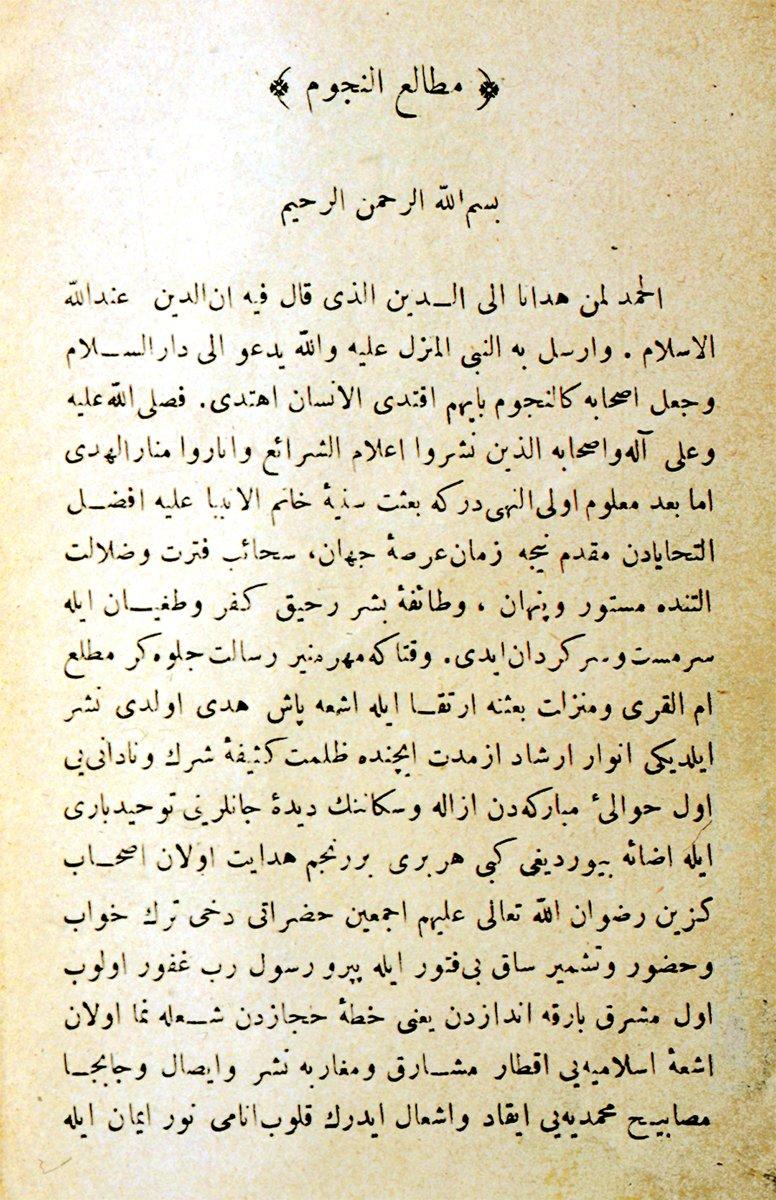 ﴿ مطالع النجوم ﴾
بسم الله الرحمن الرحيم
الحمد لمن هدانا الى الـدين الذى قال فيه ان الدين عند الله
الاسلام . وارسل به النبى المنزل عليه والله يدعو الى دار السـلام
وجعل اصحابه كالنجوم بايهم اقتدى الانسان اهتدى . فصلى الله عليه
وعلى آله واصحابه الذين نشروا اعلام الشرائع واناروا منار الهدى
اما بعد معلوم اولى النهى در كه بعثت سنيۀ خاتم الانبيا عليه افضـل
التحايادن مقدم نيجه زمان عرصۀ جهان، سحائب فترت وضلالت
التنده مستور وپنهان ، وطائفۀ بشر رحيق كفر وطغيـان ايله
سرمست وسركردان ايدى. وقتا كه مهر منير رسالت جلوه كر مطلع
ام القرى ومنزلت بعثنه ارتقـا ايله اشعه پاش هدى اولدى نشر
ايلديكى انوار ارشاد از مدت ايچنده ظلمت كثيفۀ شرك ونادانى يى
اول حوالئ مباركه دن ازاله وسكاننك ديدۀ جانلرينى توحيد بارى
ايله اضائه بيورديغى كبى هر برى بر نجم هدايت اولان اصحـاب
كزين رضوان الله تعالى عليهم اجمعين حضراتى دخى ترك خواب
وحضور وتشمير ساق بى فتور ايله پيرو رسول رب غفور اولوب
اول مشرق بارقه اندازدن يعنى خطۀ حجازدن شـعله نما اولان
اشعۀ اسلاميه يى اقطار مشـارق ومغاربه نشر وايصال وجابجـا
مصابيـح محمديه يى ايقاد واشعال ايدرك قلوب انامى نور ايمان ايله